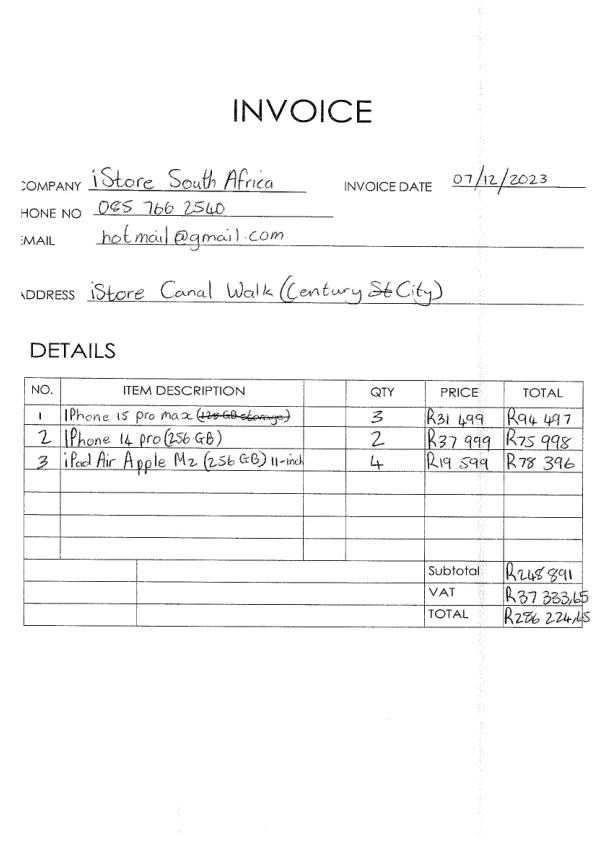 INVOICE
COMPANY iStore South Africa INVOICE DATE 07/12/2023
HONE NO 085 766 2540
EMAIL hotmail@gmail.com
ADDRESS iStore Canal Walk (Century St City)
DETAILS
NO. ITEM DESCRIPTION QTY PRICE TOTAL
1 IPhone 15 pro max (128 GB storage) 3 R31 499 R94 497
2 IPhone 14 pro (256 GB) 2 R37 999 R75 998
3 iPad Air Apple M2 (256 GB) 11-inch 4 R19 599 R78 396
Subtotal R248 891
VAT R37 333,65
TOTAL R286 224,65